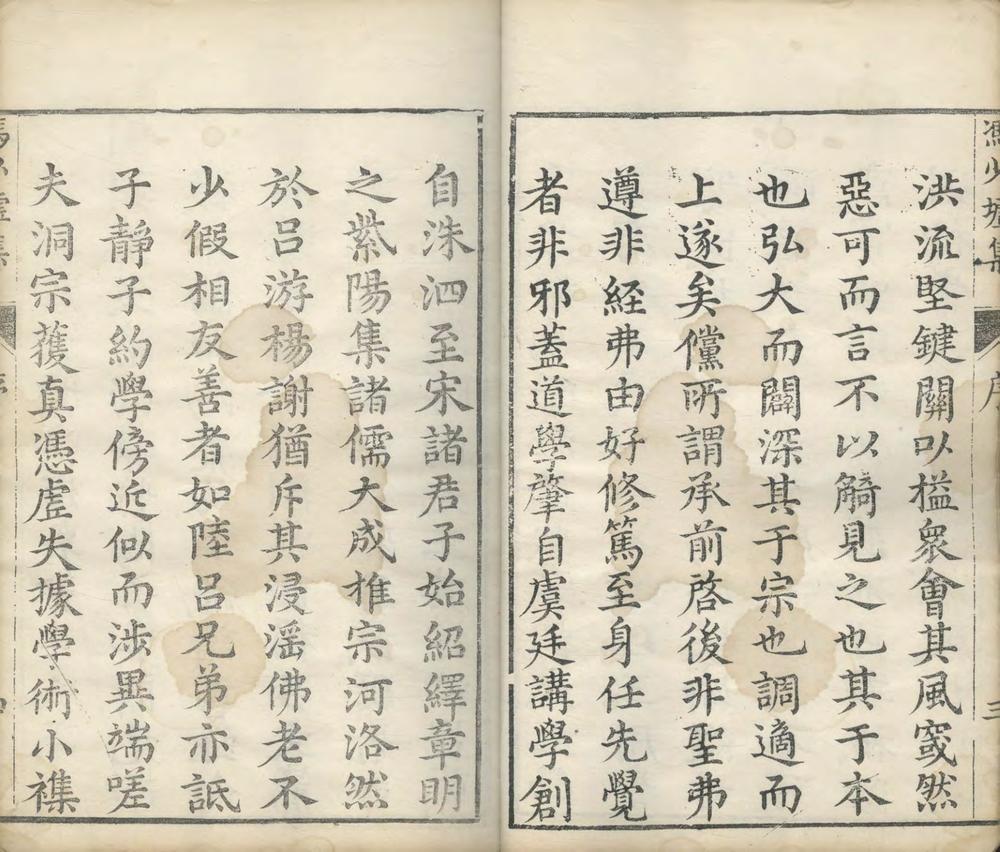 馮少墟集
序
三
洪流堅鍵關以搤衆會其風窾然
惡可而言不以觭見之也其于本
也弘大而闢深其于宗也調適而
上遂矣儻所謂承前啓後非聖弗
遵非經弗由好修篤至身任先覺
者非邪蓋道學肇自虞廷講學創
自洙泗至宋諸君子始紹繹章明
之紫陽集諸儒大成推宗河洛然
於呂游楊謝猶斥其浸滛佛老不
少假相友善者如陸呂兄弟亦詆
子靜子約學傍近似而涉異端嗟
夫洞宗蒦真憑虗失據學術小襍
馮少虛集